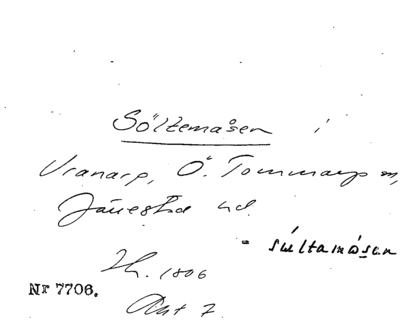 Söltemåsen i
Vranarp, Ö. Tommarps sn,
Järrestad hd.
- súltamåsen
Lh. 1806
Nr 7706.
Akt 7